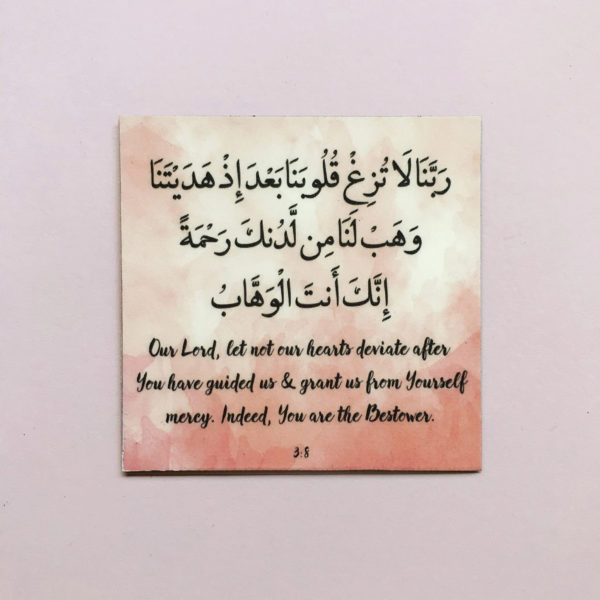 رَبَّنَا لَا تُزِغْ قُلُوبَنَا بَعْدَ إِذْ هَدَيْتَنَا
وَهَبْ لَنَا مِن لَّدُنكَ رَحْمَةً
إِنَّكَ أَنتَ الْوَهَّابُ
Our Lord, let not our hearts deviate after
You have guided us & grant us from Yourself
mercy. Indeed, You are the Bestower.
3:8